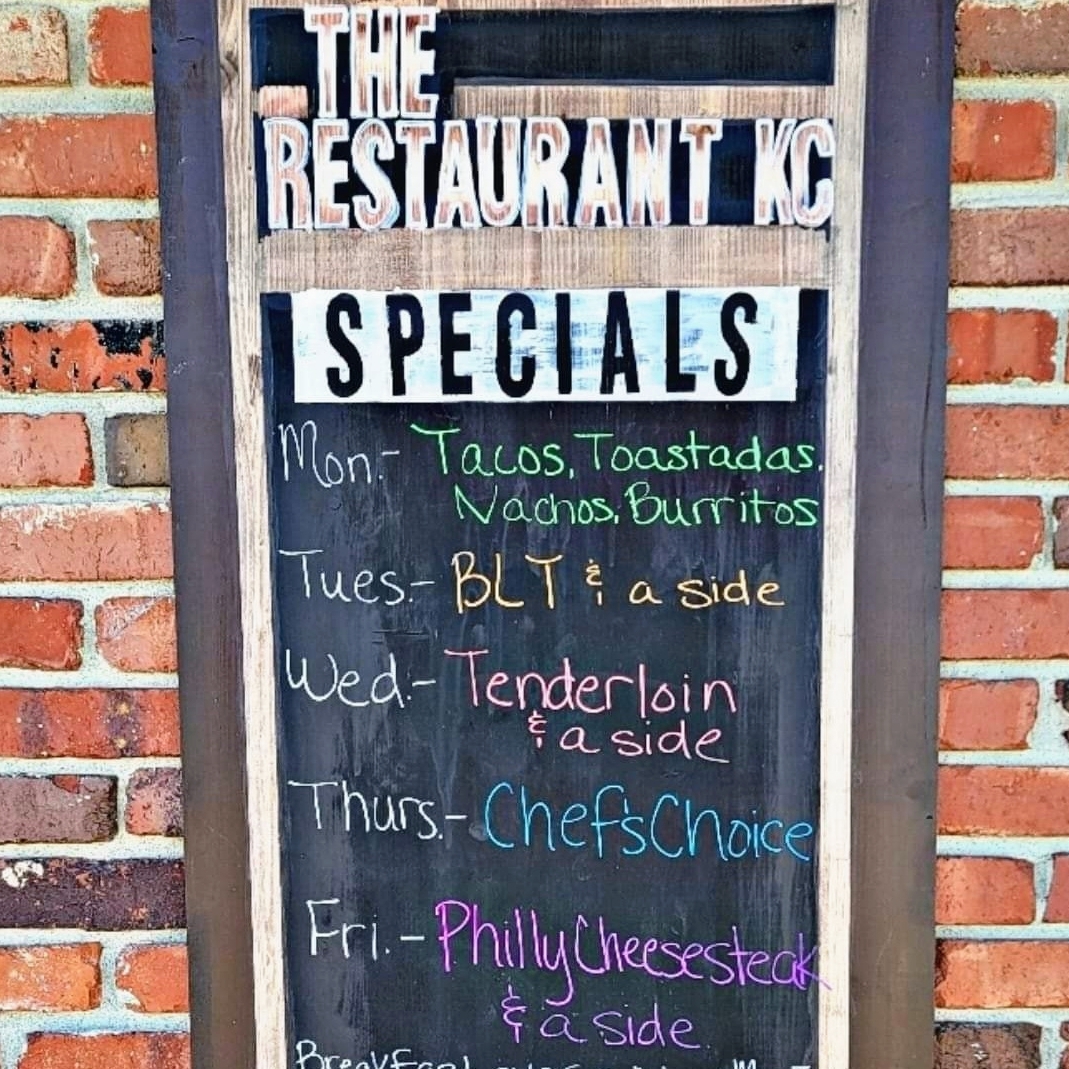 THE
RESTAURANT KC
SPECIALS
Mon.- Tacos, Toastadas,
Nachos, Burritos
Tues.- BLT & a side
Wed.- Tenderloin
& a side
Thurs.- Chef's Choice
Fri.- Philly Cheesesteak
& a side